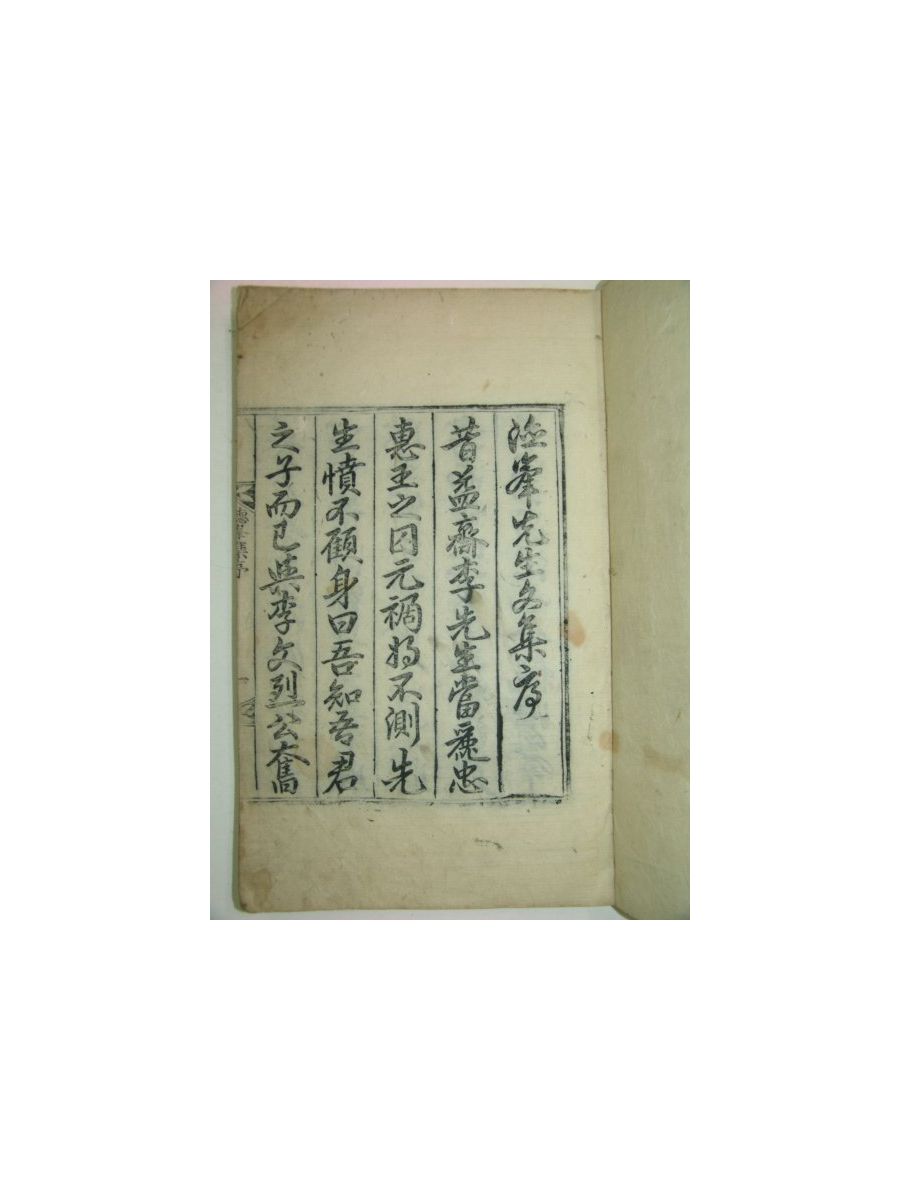 峯先生文集序
昔益齋李先生當麗忠
惠王之囚元禍將不測先
生憤不顧身曰吾知吾君
之子而已與李文烈公奮
峯集序